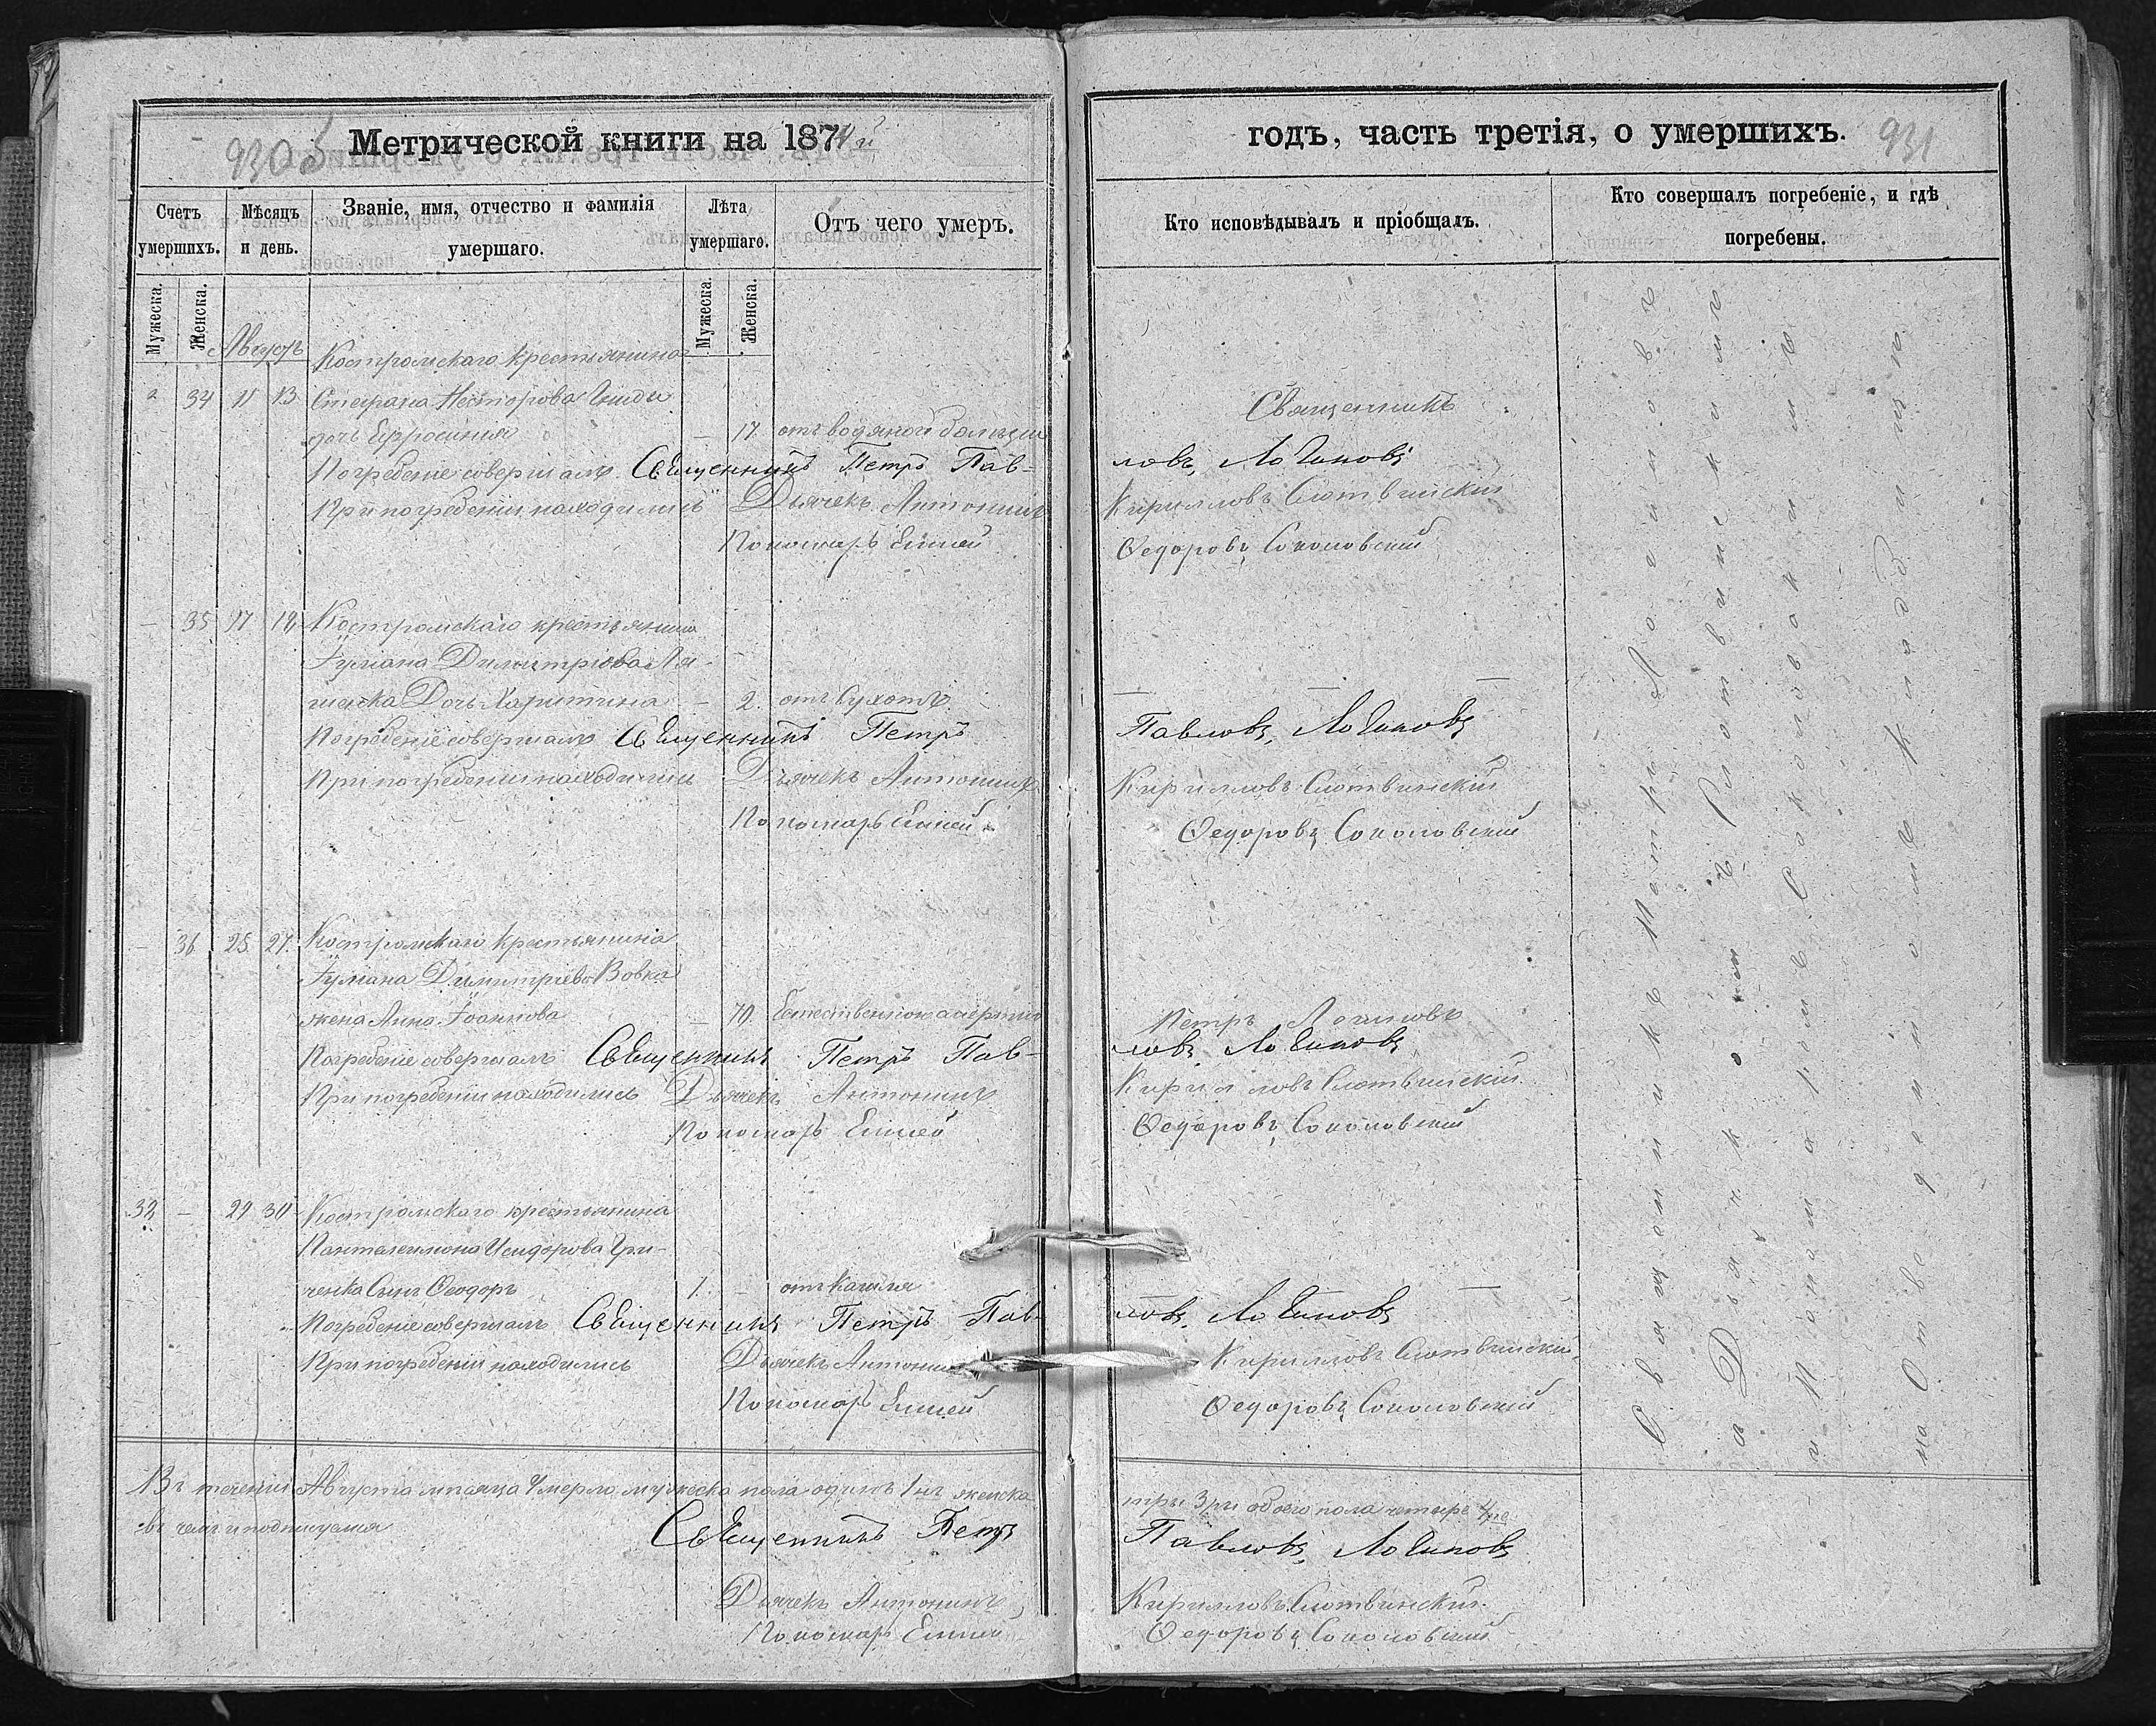 930 об
Метрической книги на 1874й
Счетъ умершихъ.
Мѣсяцъ и день.
Званіе, имя, отчество и фамилія умершаго.
Лѣта умершаго.
Отъ чего умеръ.
Мужеска.
Женска.
Мужеска.
Женска.
Августъ
Костромскаго крестьянина
34 11 13 Стефана Несторова
дочь Ефросинія — 17 отъ водяной болѣзни
Погребеніе совершалъ Священникъ Петръ Пав-
При погребеніи находились Дьячекъ Антонинъ
Пономарь Елисей
— 35 17 19 Костромскаго крестьянина
Іуліана Димитріова Ля-
шенка Дочь Харитина — 2. отъ Сухотъ.
Погребеніе совершалъ Священникъ Петръ
При погребеніи находились Дьячекъ Антонинъ
Пономарь Елисей
— 36 25 27 Костромскаго крестьянина
Іуліана Димитріева Вовка
жена Анна Іоаннова — 70. Естественною смертію
Погребеніе совершалъ Священникъ Петръ Пав-
При погребеніи находились Дьячекъ Антонинъ
Пономарь Елисей
— 29 30 Костромскаго крестьянина
Пантелеимона Исидорова Гри-
ченка Сынъ Ѳеодоръ 1. — отъ Кашля
Погребеніе совершалъ Священникъ Петръ Пав-
При погребеніи находились Дьячекъ Антонинъ
Пономарь Елисей
Въ теченіи Августа мѣсяца Умерло мужеска пола одинъ 1нъ женска
въ чемъ и подписуемся Священникъ Петръ
Дьячекъ Антонинъ
Пономарь Елисей
годъ, часть третія, о умершихъ.
931
Кто исповѣдывалъ и пріобщалъ.
Кто совершалъ погребеніе, и гдѣ погребены.
Священникъ
ловъ, Логиновъ
Кирилловъ Слотвинскій
Ѳедоровъ Соколовскій
— — —
Павловъ, Логиновъ
Кирилловъ Слотвинскій
Ѳедоровъ Соколовскій
Петръ Логиновъ
ловъ Логиновъ
Кирилловъ Слотвинскій
Ѳедоровъ Соколовскій
ловъ, Логиновъ
Кирилловъ Слотвинскій
Ѳедоровъ Соколовскій
три 3ри обоего пола четыре 4ре
Павловъ, Логиновъ
Кирилловъ Слотвинскій
Ѳедоровъ Соколовскій
Священникъ Петръ Логиновъ
Дьячкомъ Слотвинскимъ
и Пономаремъ Соколовскимъ
на Отведенномъ Кладбищѣ